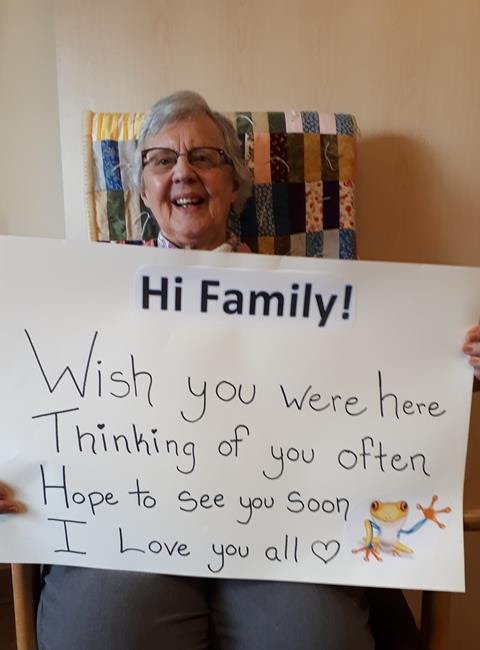 Hi Family!
Wish you were here
Thinking of you often
Hope to see you soon
I Love you all ♡